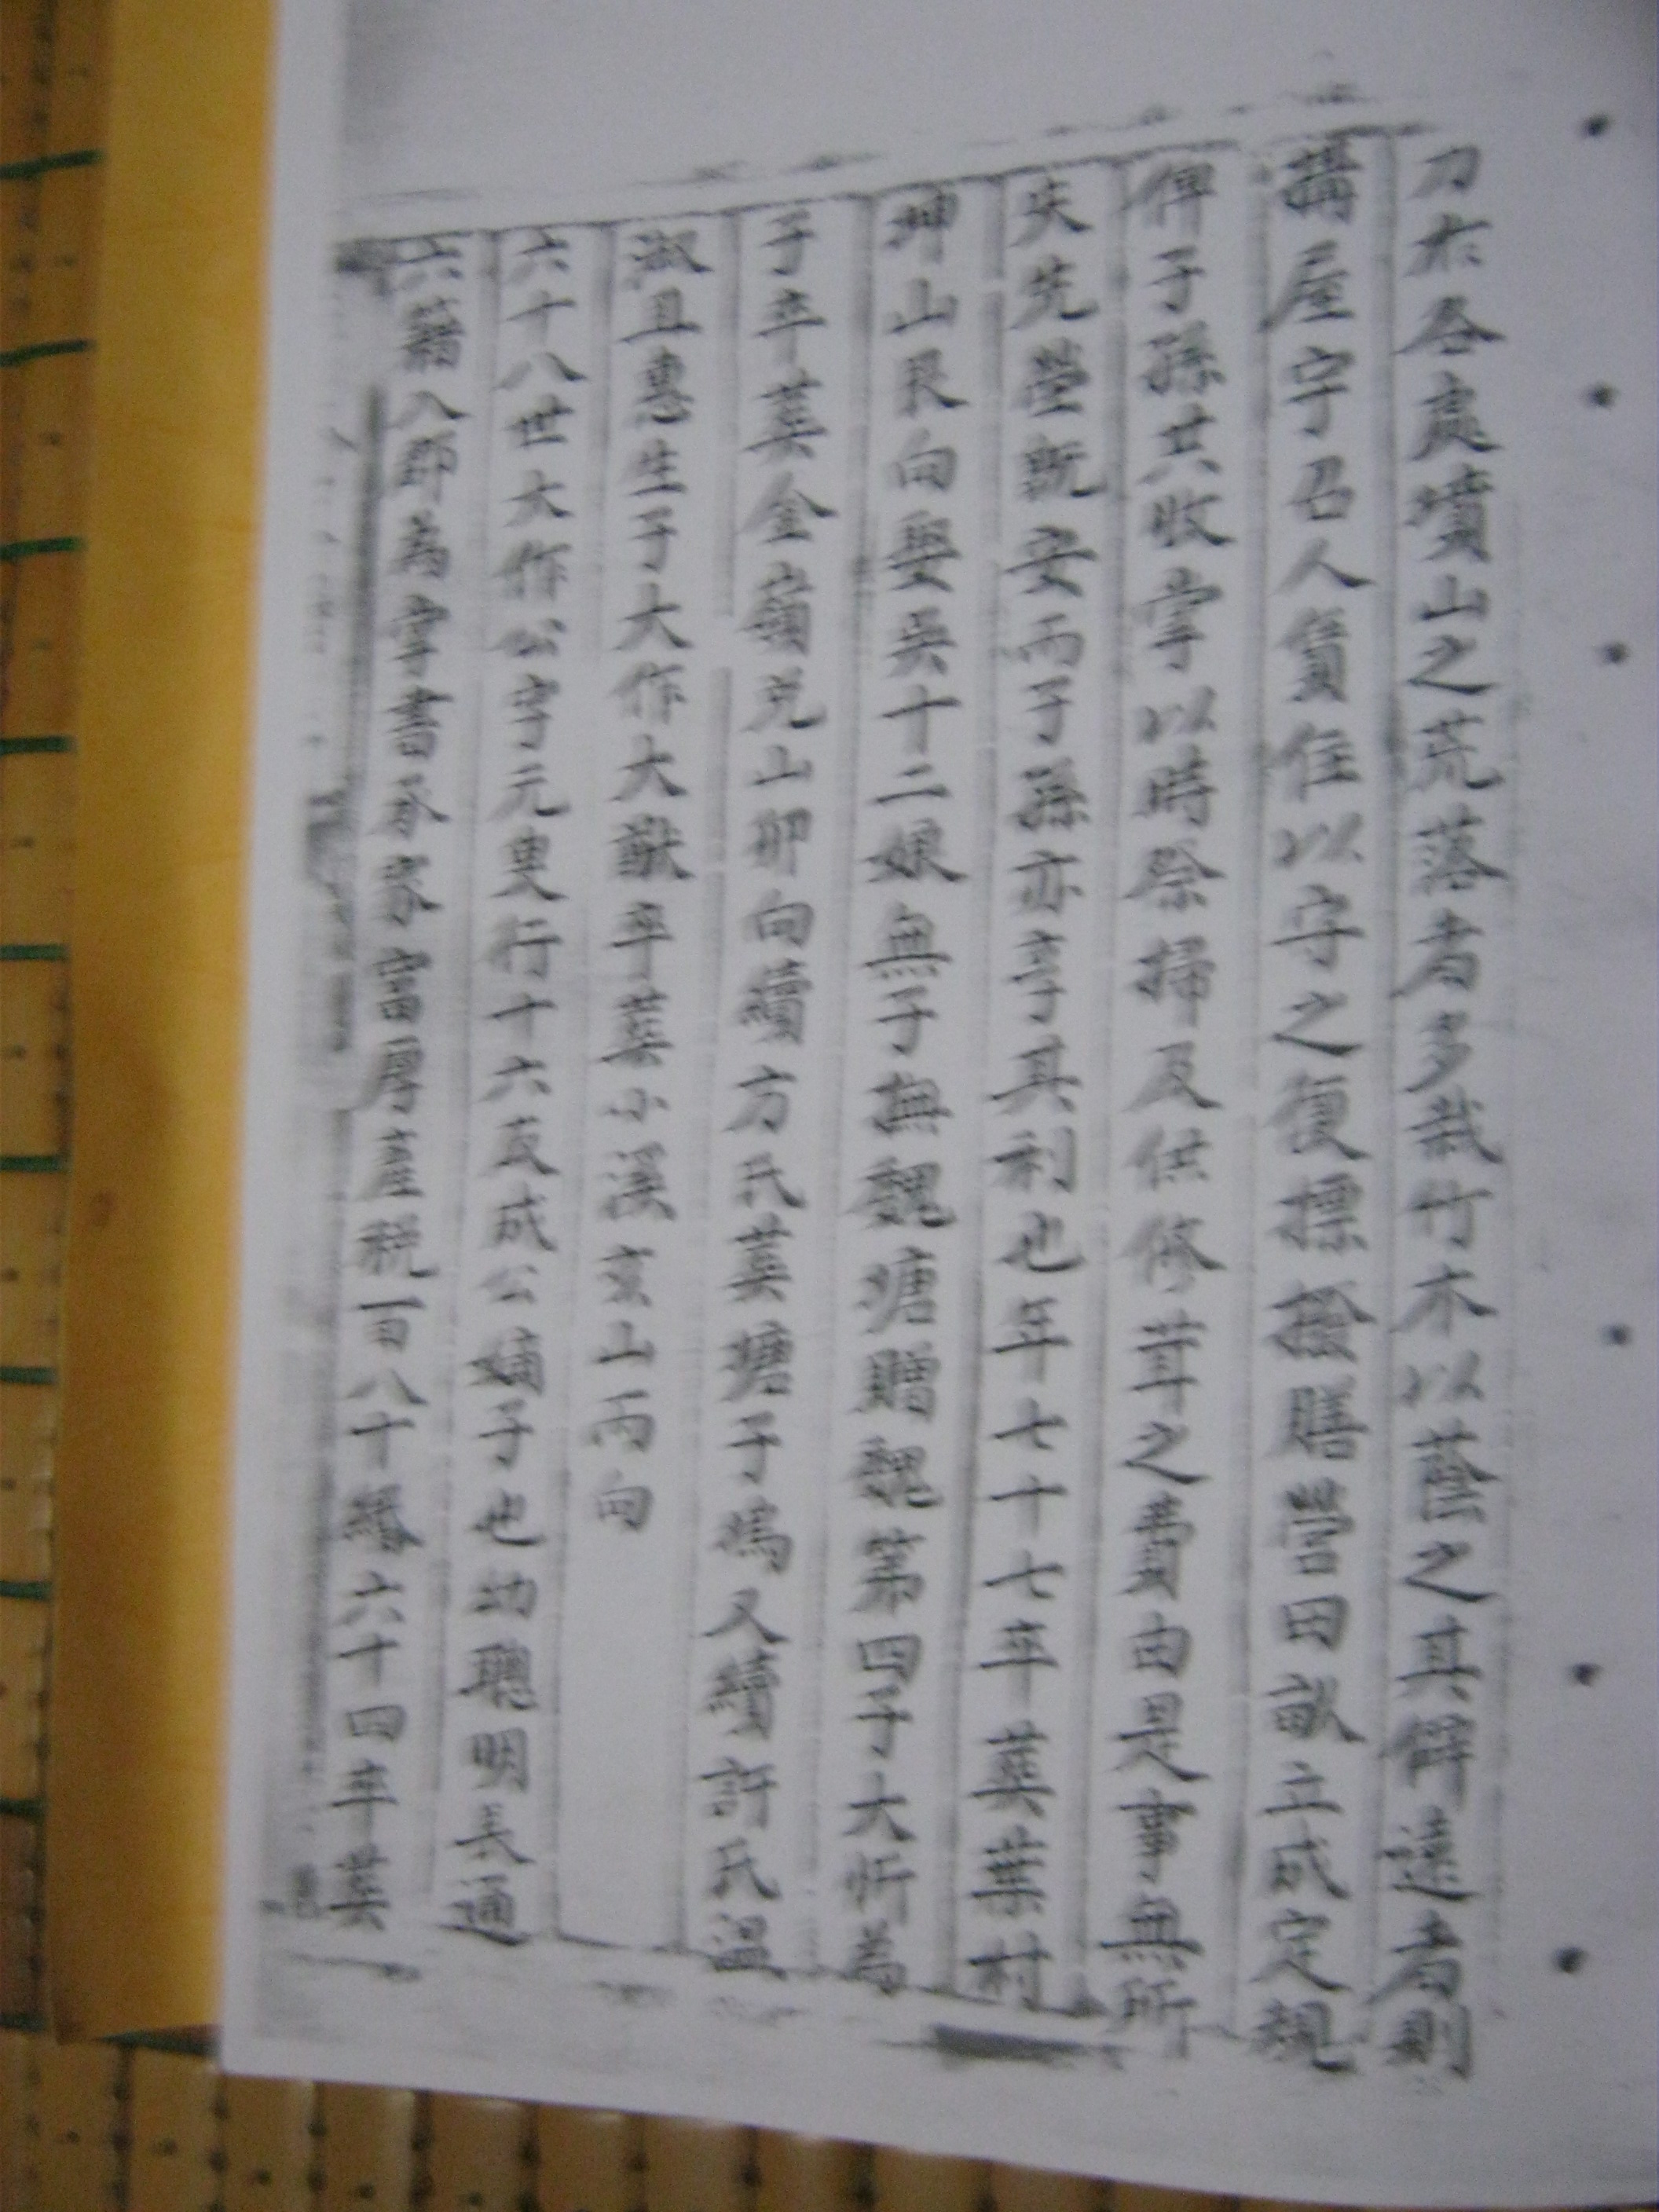 力於各處墳山之荒落者多栽竹木以蔭之其僻遠者則
搆屋宇召人賃住以守之復摽撥膳塋田畝立成定規
俾子孫共收掌以時祭掃及供修葺之費由是事無所
失先塋既安而子孫亦享其利也年七十七卒葬葉村
坤山艮向娶吳十二娘無子撫魏塘贈魏第四子大忻為
子卒葬金嶺兌山卯向續方氏葬塘子塢又續許氏溫
淑且惠生子大作大猷卒葬小溪亥山丙向
六十八世大作公字元叟行十六友成公嫡子也幼聰明長通
六籍入郡為掌書承家富厚產稅一百八十緡六十四卒葬